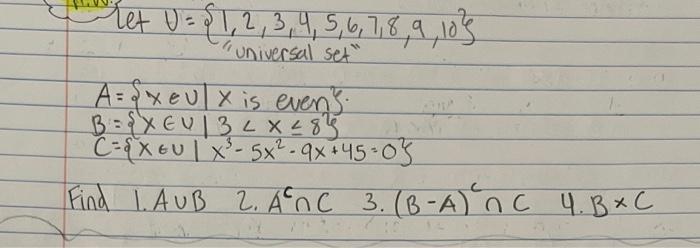 let U = {1, 2, 3, 4, 5, 6, 7, 8, 9, 10}
"universal set"
A = {x ∈ U | x is even}.
B = {x ∈ U | 3 < x ≤ 8}
C = {x ∈ U | x³ - 5x² - 9x + 45 = 0}
Find 1. A∪B 2. Aᶜ∩C 3. (B-A)ᶜ∩C 4. B×C